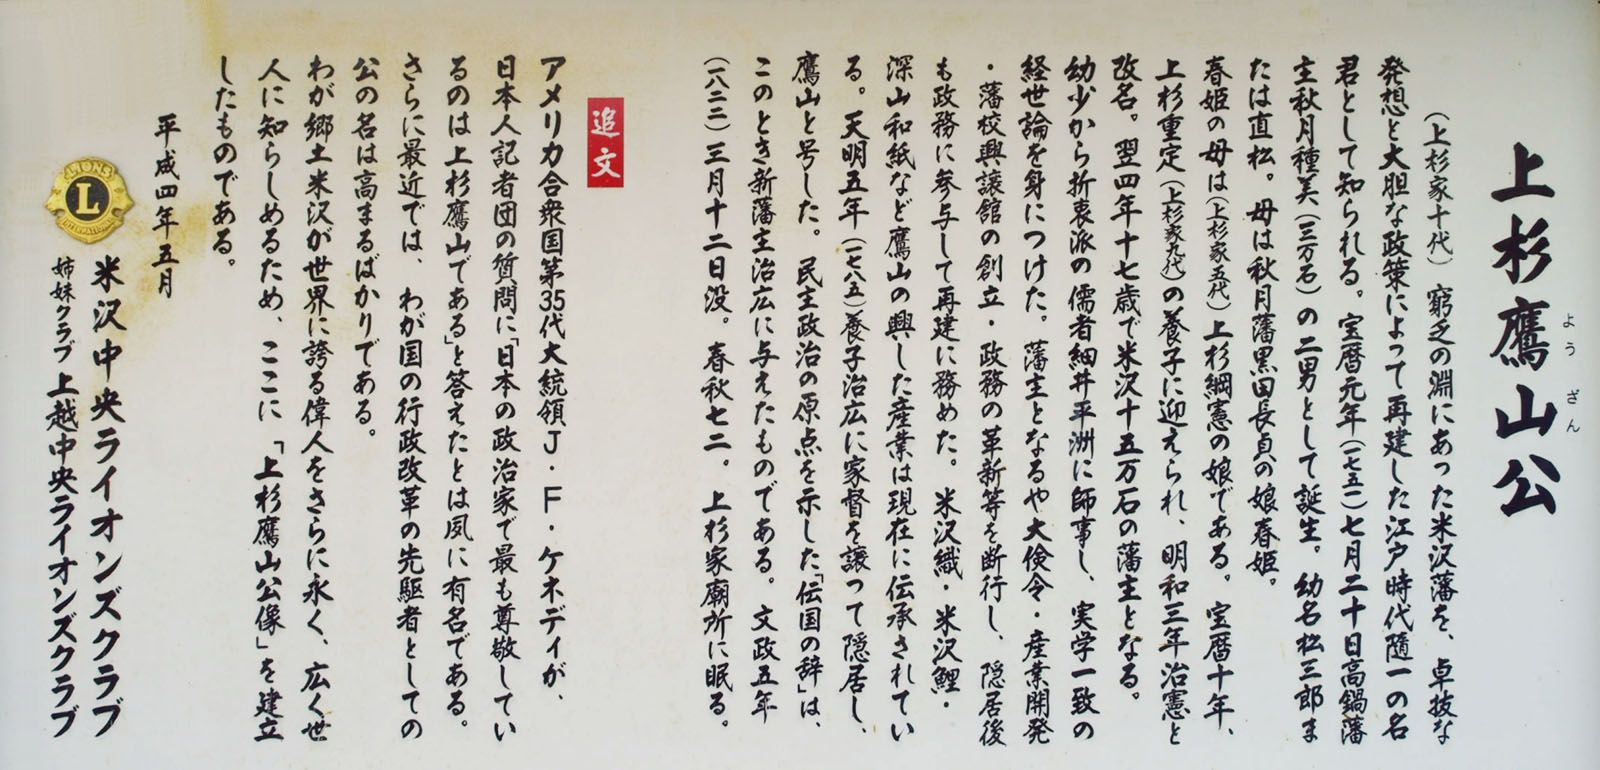 上杉鷹山公
ようざん
（上杉家十代）窮乏の淵にあった米沢藩を、卓抜な
発想と大胆な政策によって再建した江戸時代随一の名
君として知られる。宝暦元年（一七五一）七月二十日高鍋藩
主秋月種美（三万石）の二男として誕生。幼名松三郎ま
たは直松。母は秋月藩黒田長貞の娘春姫。
春姫の母は（上杉家五代）上杉綱憲の娘である。宝暦十年、
上杉重定（上杉家九代）の養子に迎えられ、明和三年治憲と
改名。翌四年十七歳で米沢十五万石の藩主となる。
幼少から折衷派の儒者細井平洲に師事し、実学一致の
経世論を身につけた。藩主となるや大倹令・産業開発
・藩校興譲館の創立・政務の革新等を断行し、隠居後
も政務に参与して再建に務めた。米沢織・米沢鯉・
深山和紙など鷹山の興した産業は現在に伝承されてい
る。天明五年（一七八五）養子治広に家督を譲って隠居し、
鷹山と号した。民主政治の原点を示した「伝国の辞」は、
このとき新藩主治広に与えたものである。文政五年
（一八二二）三月十二日没。春秋七二。上杉家廟所に眠る。
追文
アメリカ合衆国第35代大統領J・F・ケネディが、
日本人記者団の質問に「日本の政治家で最も尊敬してい
るのは上杉鷹山である」と答えたとは夙に有名である。
さらに最近では、わが国の行政改革の先駆者としての
公の名は高まるばかりである。
わが郷土米沢が世界に誇る偉人をさらに永く、広く世
人に知らしめるため、ここに「上杉鷹山公像」を建立
したものである。
平成四年五月
LIONS
L
INTERNATIONAL
米沢中央ライオンズクラブ
姉妹クラブ 上越中央ライオンズクラブ